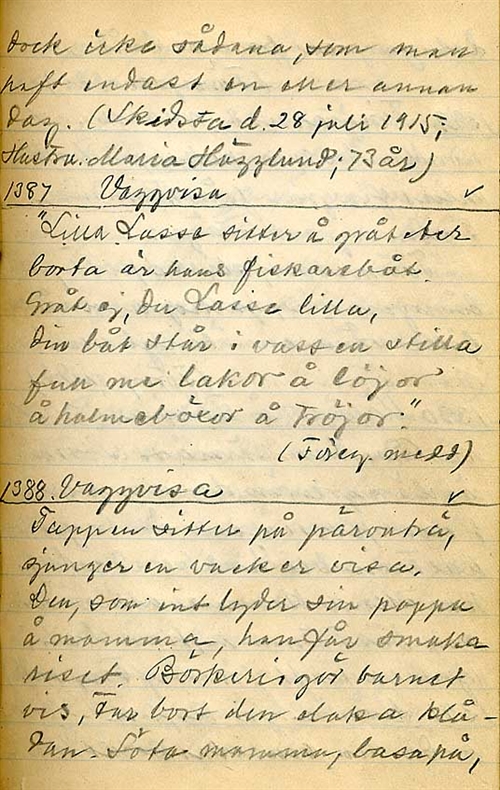 dock icke sådana, som man
haft endast en eller annan
dag. (Skidsta d. 28 juli 1915;
Hustru Maria Hägglund; 73 år)
1387 Vaggvisa ✓
"Lilla Lasse sitter å gråter
borta är hans fiskarebåt.
Gråt ej, du Lasse lilla,
din båt står i vassen stilla
full me lakor å löjor
å halmeböxor å tröjor."
(Föreg. medd)
1388. Vaggvisa ✓
Tappen sitter på päronträ,
sjunger en vacker visa.
Den, som int lyder sin pappa
å mamma, han får smaka
riset. Börkeris gör barnet
vis, tar bort den elaka klå-
dan. Söta mamma, basa på,